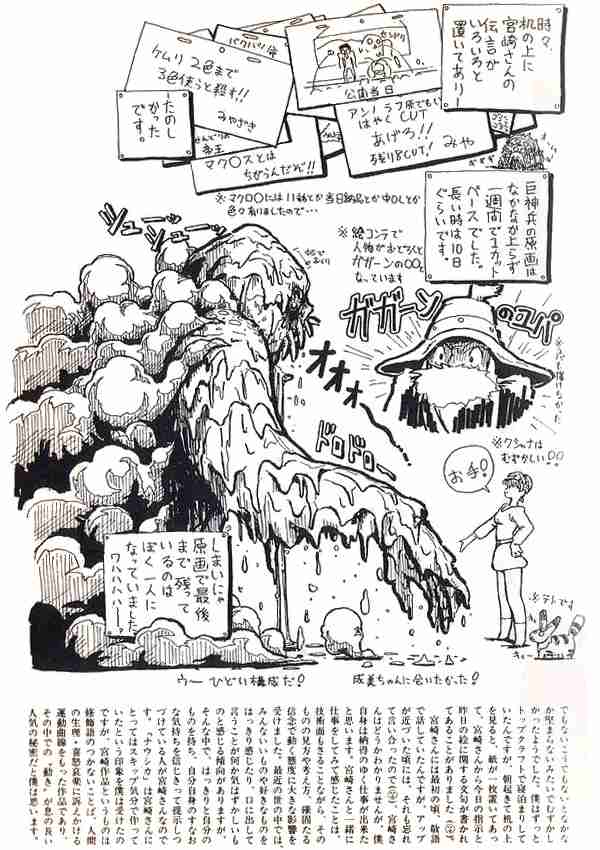 時々、
机の上に
宮崎さんの
伝言が
いろいろと
置いてあり―
パクパク
公開当日
ケムリ2色まで
3色使うと殺す!!
みやざき
アンノ ラフ原でもいい
はやくCUT
あげろ!!
残り8CUT!
みや
帝王
マク〇スとは
ちがうんだぞ!!
―たのし
かった
です。
※マクロ〇には11話とか当日納品とか中〇しとか
色々有りましたので…
巨神兵の原画は
なかなか上らず
一週間で1カット
ペースでした。
長い時は10日
ぐらいです。
※絵コンテで
人物がおどろくと
ガガーンの〇〇と
なっています
シューッ
シューッ
ガガーン
のユパ
オオォ
ドロドロー
※クシャナは
むずかしい!
お手!
※テトです
しまいにゃ
原画で最後
まで残って
いるのは
ぼく一人に
なっていました
ワハハハハー!?
ウー ひどい構成だ!
成美ちゃんに会いたかった!
でもないこうでもないとなかな
か堅まらないみたいでむずかし
かったようでした。僕はずっと
トップクラフトで寝泊まりして
いたんですが、朝起きて机の上
を見ると、紙が一枚置いてあっ
て、宮崎さんから今日の指示と
昨日の絵に関する文句が書かれ
てあることがありました(②)。
宮崎さんには最初の頃、敬語
で話してたんですが、アップ
が近づいた頃には、それも忘れ
て言い合ったので、宮崎さ
んはどうかわかりませんが、僕
自身は納得のゆく仕事が出来た
と思います。宮崎さんと一緒に
仕事をしてみて感じたことは、
技術面もさることながら、その
ものの見方や考え方、頑固たる
信念で動く態度に大きな影響を
受けました。最近の世の中では
みんないいものや好きなものを
はっきり感じたり、口に出して
言うことが何か気はずかしいも
のと感じる傾向がありますが、
そんな中で、はっきりと自分の
ものを持ち、自分自身のすなお
な気持ちを信じきって提示しつ
づけている人が宮崎さんなので
す。「ナウシカ」は宮崎さんに
とってはスキップ気分で作って
いたという印象を僕は受けたの
ですが、宮崎作品というものは
修飾語のつかないことば、人間
の生理・喜怒哀楽に訴えかける
運動曲線をもった作品であり、
その中での〝動き〟が息の長い
人気の秘密だと僕は思います。